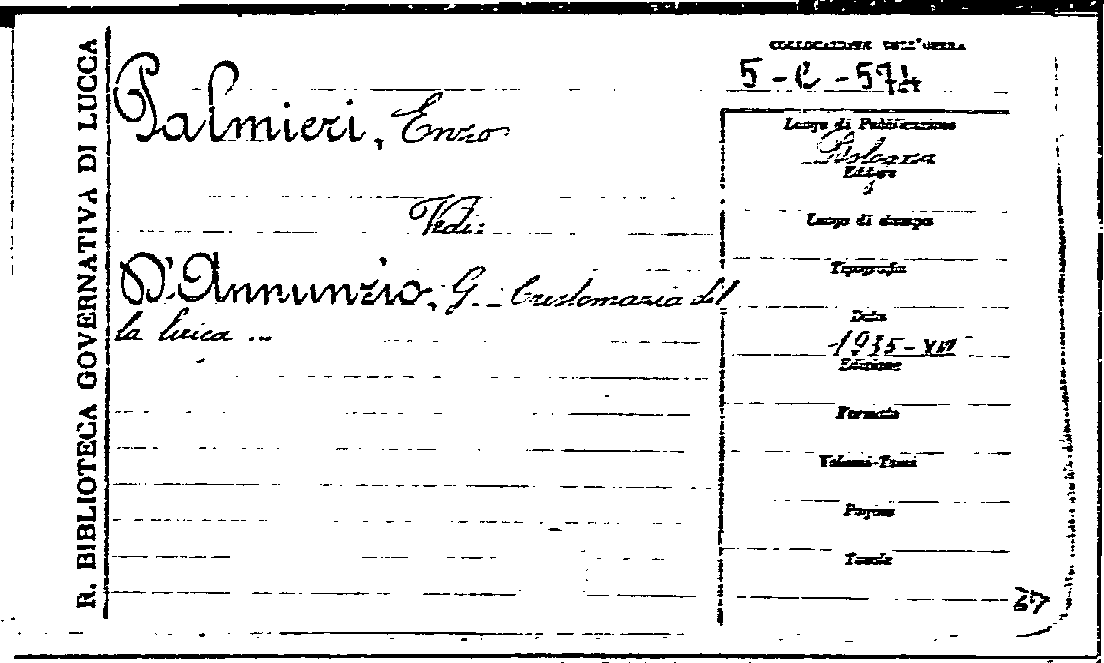 R. BIBLIOTECA GOVERNATIVA DI LUCCA
COLLOCAZIONE DELL'OPERA
5-C-574
Palmieri, Enzo
Vedi:
D'Annunzio, G. - Crestomazia del
la lirica ...
Luogo di Pubblicazione
Bologna
Editore
Luogo di stampa
Tipografia
Data
1935-XIII
Edizione
Formato
Volumi-Tomi
Pagine
Tavole